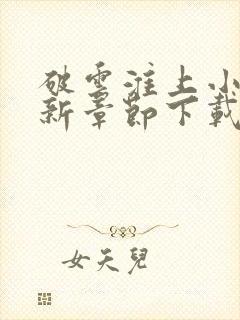 破雲淮上小
新章節下載
女天兒